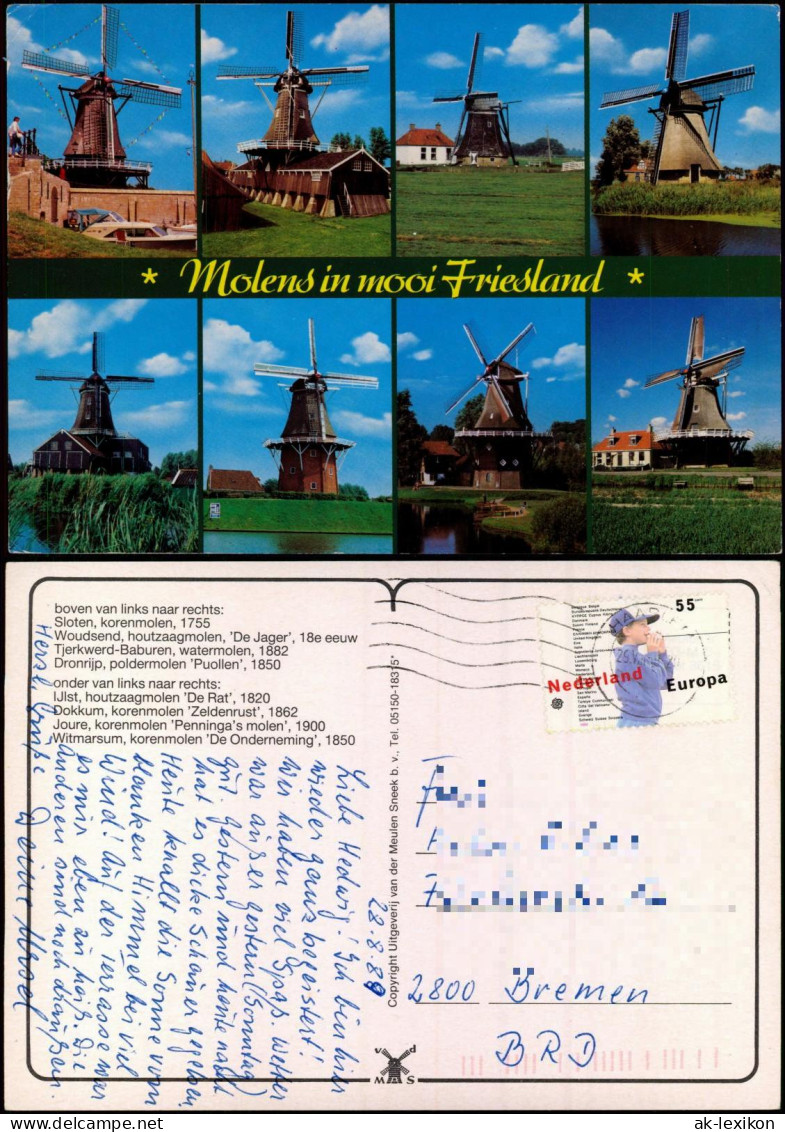 * Molens in mooi Friesland *
boven van links naar rechts:
Sloten, korenmolen, 1755
Woudsend, houtzaagmolen, 'De Jager', 18e eeuw
Tjerkwerd-Baburen, watermolen, 1882
Dronrijp, poldermolen 'Puollen', 1850
onder van links naar rechts:
IJlst, houtzaagmolen 'De Rat', 1820
Dokkum, korenmolen 'Zeldenrust', 1862
Joure, korenmolen 'Penninga's molen', 1900
Witmarsum, korenmolen 'De Onderneming', 1850
28.8.89
Liebe Hedwig! Ich bin hier
wieder ganz begeistert!
Wir haben viel Spaß. Wetter
war außer gestern (Sonntag)
gut. Gestern und heute nacht
hat es dicke Schauer gegeben.
Heute knallt die Sonne vom
blanken Himmel bei viel
Wind! Auf der Terrasse war
es mir eben zu heiß. Die
anderen sind noch draußen.
Herzl. Grüße Deine
Copyright Uitgeverij van der Meulen Sneek b.v., Tel. 05150-18375*
v d
MAS
55 cent
Nederland
Europa
2800 Bremen
BRD
ak-lexikon